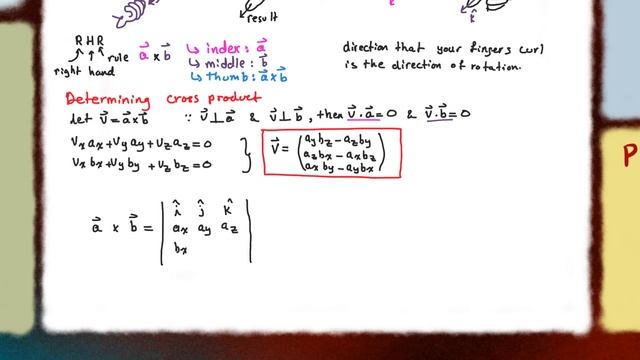 result
k̂
R H R
rule
right hand
a⃗ x b⃗
↳ index : a⃗
↳ middle : b⃗
↳ thumb : a⃗ x b⃗
direction that your fingers curl
is the direction of rotation.
Determining cross product
let V⃗ = a⃗ x b⃗ ∵ V⃗ ⊥ a⃗ & V⃗ ⊥ b⃗ , then V⃗ . a⃗ = 0 & V⃗ . b⃗ = 0
Vx ax + Vy ay + Vz az = 0
Vx bx + Vy by + Vz bz = 0
V⃗ = ( ay bz − az by
az bx − ax bz
ax by − ay bx )
a⃗ x b⃗ = | î ĵ k̂
ax ay az
bx |
P